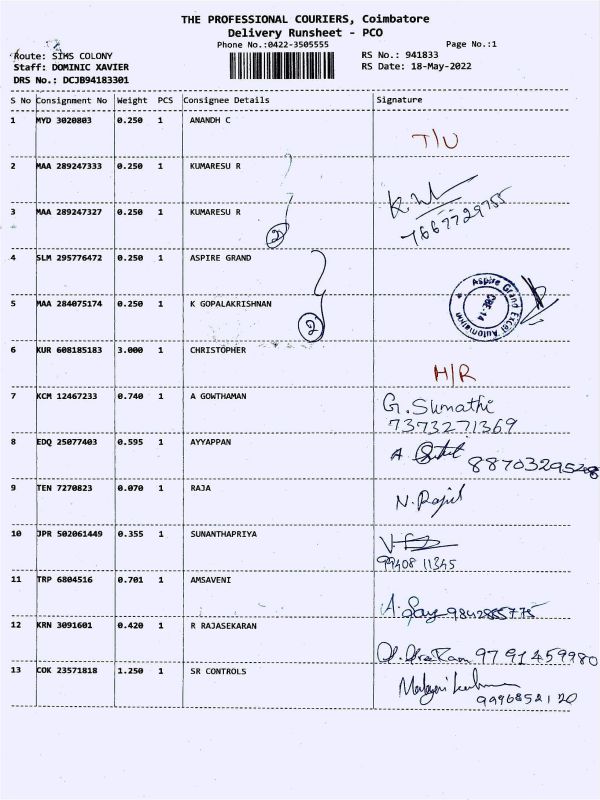 THE PROFESSIONAL COURIERS, Coimbatore
Delivery Runsheet - PCO
Phone No.:0422-3505555
Page No.:1
Route: SIMS COLONY
RS No.: 941833
Staff: DOMINIC XAVIER
RS Date: 18-May-2022
DRS No.: DCJB94183301
S No Consignment No Weight PCS Consignee Details Signature
1 MYD 3020803 0.250 1 ANANDH C
T/U
2 MAA 289247333 0.250 1 KUMARESU R
3 MAA 289247327 0.250 1 KUMARESU R
7667729755
2
4 SLM 295776472 0.250 1 ASPIRE GRAND
Aspire Grand Excel Automation
CBE-14
5 MAA 284075174 0.250 1 K GOPALAKRISHNAN
2
6 KUR 608185183 3.000 1 CHRISTOPHER
H/R
7 KCM 12467233 0.740 1 A GOWTHAMAN
G. Sumathi
7373271369
8 EDQ 25077403 0.595 1 AYYAPPAN
A
9 TEN 7270823 0.070 1 RAJA
N.
10 JPR 502061449 0.355 1 SUNANTHAPRIYA
99408 11345
11 TRP 6804516 0.701 1 AMSAVENI
A. 9842885775
12 KRN 3091601 0.420 1 R RAJASEKARAN
9791459980
13 COK 23571818 1.250 1 SR CONTROLS
9996852120